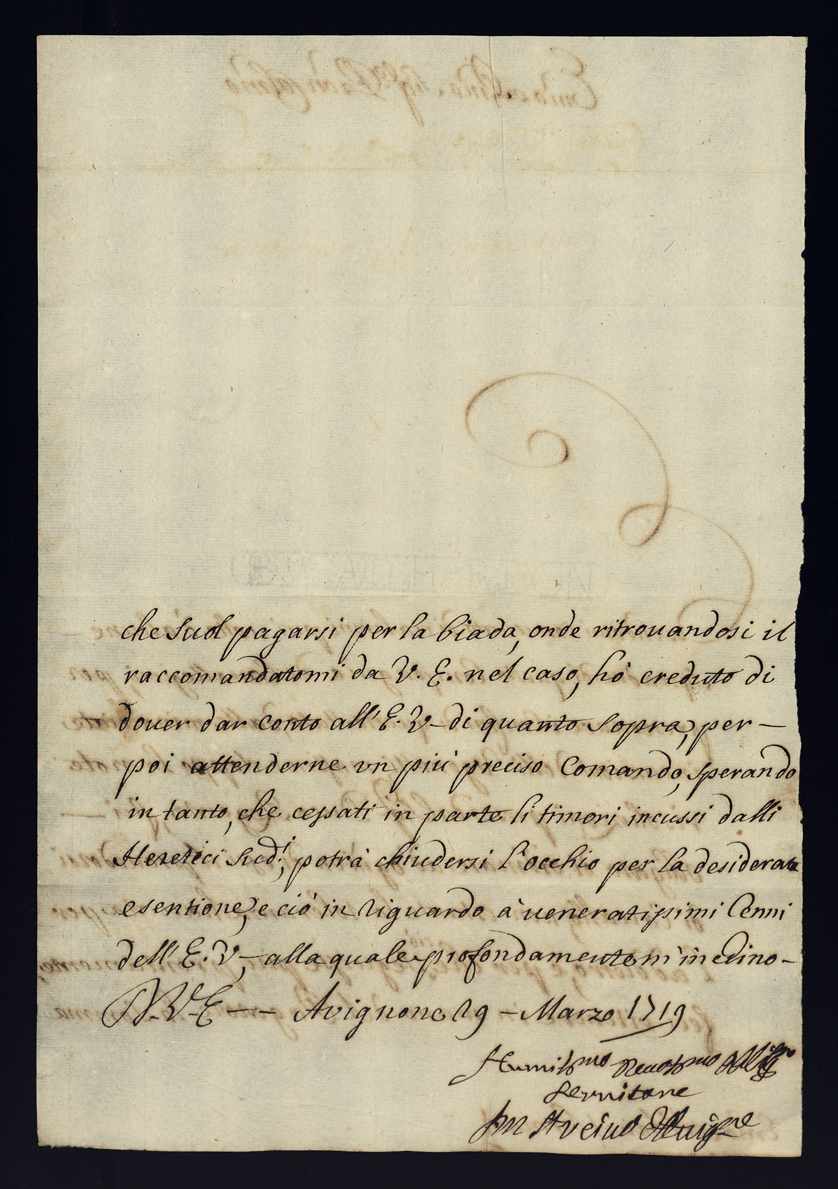 che suol pagarsi per la biada, onde ritrouandosi il
raccomandatomi da V. E. nel caso, hò creduto di
douer dar conto all' E. V. di quanto sopra, per
poi attenderne vn più preciso Comando, sperando
in tanto, che cessati in parte li timori incussi dalli
Heretici sud.i, potrà chiudersi l'occhio per la desiderata
esentione, e ciò in riguardo à ueneratissimi Cenni
dell' E. V., alla quale profondamente m' inchino
D. V. E. Avignone 29 Marzo 1719
Humiliss.mo Deuotiss.mo Obblig.mo
Seruitore